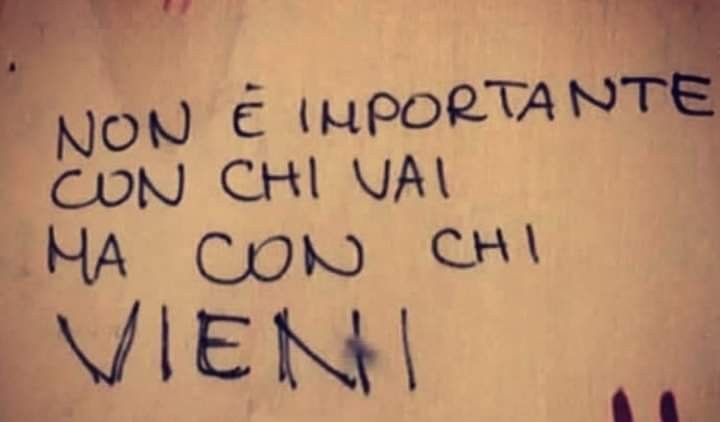 NON È IMPORTANTE
CON CHI VAI
MA CON CHI
VIENI